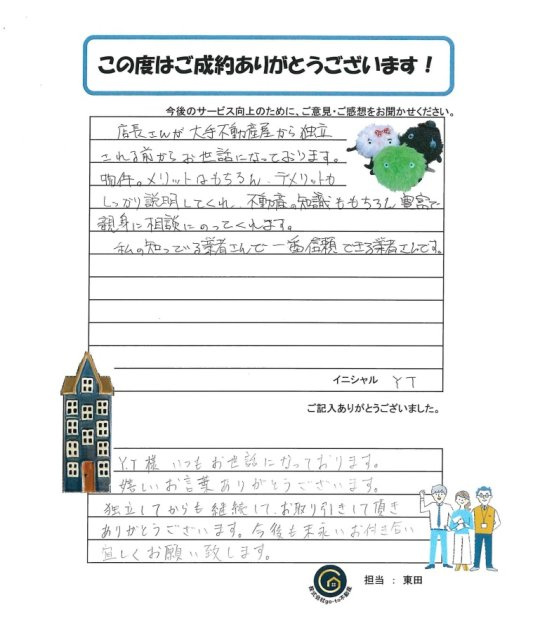 この度はご成約ありがとうございます！
今後のサービス向上のために、ご意見・ご感想をお聞かせください。
店長さんが大手不動産屋から独立
される前からお世話になっております。
物件のメリットはもちろん、デメリットも
しっかり説明してくれ、不動産の知識ももちろん豊富で
親身に相談にのってくれます。
私の知っている業者さんで一番信頼できる業者さんです。
イニシャル YT
ご記入ありがとうございました。
Y.T様 いつもお世話になっております。
嬉しいお言葉ありがとうございます。
独立してからも継続して、お取り引きして頂き
ありがとうございます。今後も末永いお付き合い
宜しくお願い致します。
株式会社go-to不動産
担当 : 東田